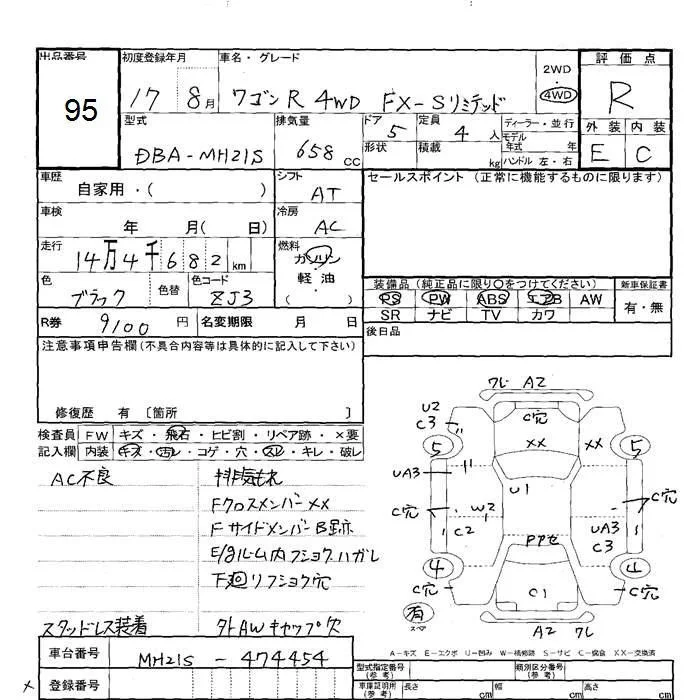 出品番号 初度登録年月 車名・グレード 2WD 評価点
95 17 8月 ワゴンR 4WD FX-Sリミテッド 4WD R
型式 排気量 ドア 定員 ディーラー・並行 外装 内装
DBA-MH21S 658 CC 5 4 人 モデル 年式 年 E C
形状 積載 kg ハンドル 左・右
車歴 自家用・( ) シフト AT セールスポイント (正常に機能するものに限ります)
車検 年 月( 日) 冷房 AC
走行 14万4千682 km 燃料 ガソリン
軽油
色 ブラック 色替 色コード ZJ3 ・( )
装備品 (純正品に限り○をつけてください) 新車保証書
PS PW ABS エアB AW 有・無
SR ナビ TV カワ
R券 9100 円 名変期限 月 日
後日品
注意事項申告欄(不具合内容等は具体的に記入して下さい)
修復歴 有 〔箇所 〕
検査員 FW キズ・飛石・ヒビ割・リペア跡・×要
記入欄 内装 キズ・汚レ・コゲ・穴・スレ・キレ・破レ
AC不良 排気もれ
FクロスメンバーXX
FサイドメンバーB跡
E/gルーム内フショクハガレ
下廻リフショク穴
スタッドレス装着 外AWキャップ欠
ワレ A2
U2
C3 C穴
XX XX
5 5
UA3 U1
C穴 W2 C穴
C2 UA3
C3
4 4
C穴 C1 C穴
有
スペア
A2 ワレ
A-キズ E-エクボ U-凹み W-補修跡 S-サビ C-腐食 XX-交換済
車台番号 MH21S - 474454
登録番号
型式指定番号 (参考) 類別区分番号 (参考)
車庫証明用 (参考) 長さ cm 幅 cm 高さ cm